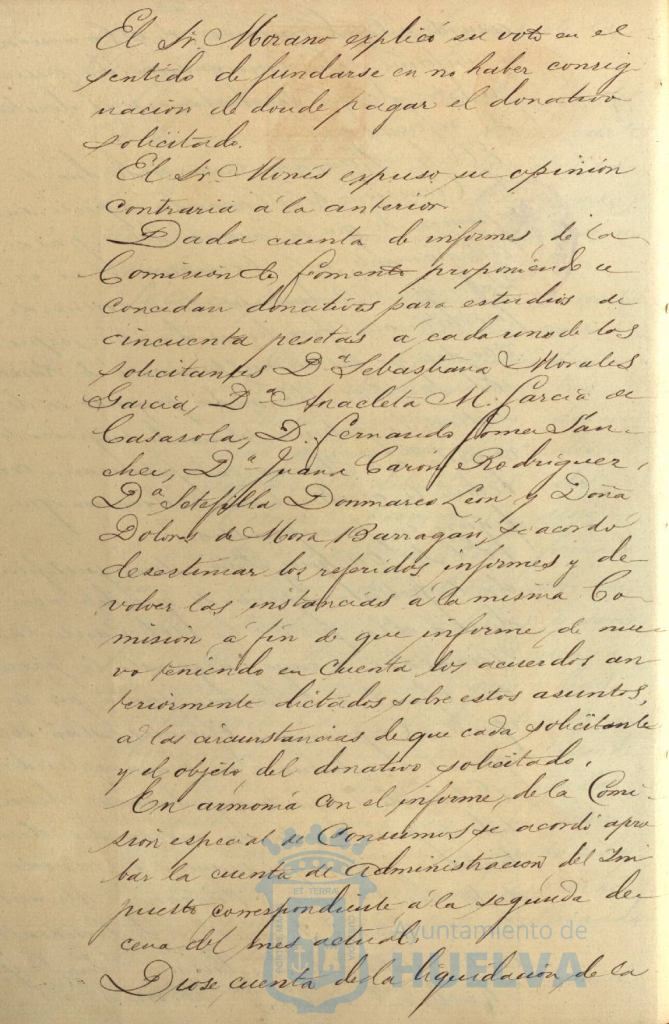 El Sr. Morano explicó su voto en el
sentido de fundarse en no haber consig
nacion de donde pagar el donativo
solicitado.
El Sr. Monís expuso su opinión
contraria á la anterior.
Dada cuenta de informes de la
Comisión de Fomento proponiendo se
concedan donativos para estudios de
cincuenta pesetas á cada uno de los
solicitantes Dª Sebastiana Morales
García, Dª Anacleta M. García de
Casasola, D. Fernando Gomez Sán-
chez, Dª Juana Carón Rodriguez,
Dª Setefilla Donmarco Leon y Doña
Dolores de Mora Barragán, se acordó
desestimar los referidos informes y de
volver las instancias á la misma Co
misión á fin de que informe de nue
vo teniendo en cuenta los acuerdos an
teriormente dictados sobre estos asuntos,
á las circunstancias de que cada solicitante
y el objeto del donativo solicitado.
En armonía con el informe de la Comi
sión especial de Consumos se acordó apro
bar la cuenta de Administracion del Im
puesto correspondiente á la segunda de
cena del mes actual.
Diose cuenta de la liquidación de la
Ayuntamiento de
HUELVA